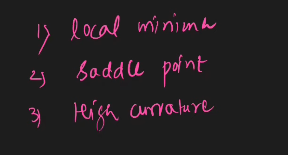 1) local minima
2) Saddle point
3) High curvature